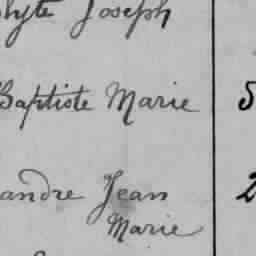 Joseph
Baptiste Marie 5
andre Jean 2
Marie